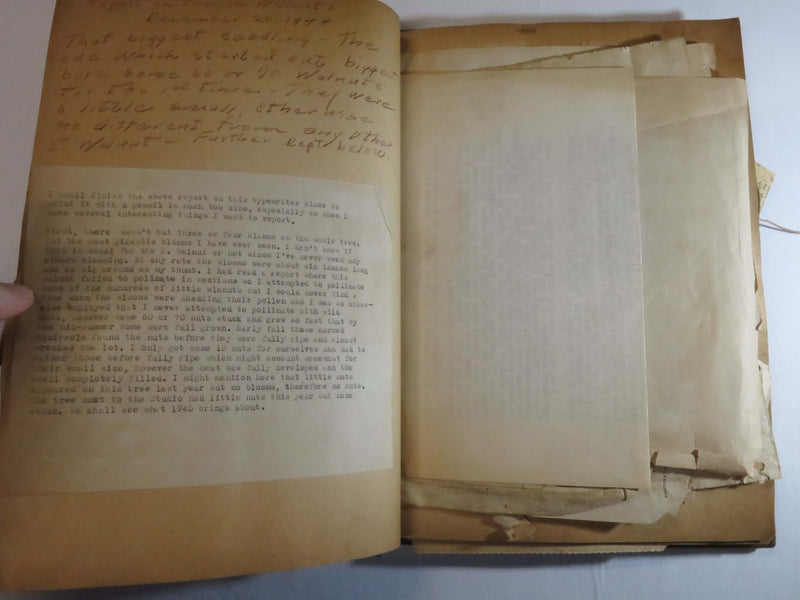 Report on English Walnuts
December 20, 1944
That biggest seedling - The
one which started out biggest
bore some 60 or 70 Walnuts
for the 1st time - They were
a little small, otherwise
no different from any other
E. Walnut - Further Rept below
I shall finish the above report on this typewriter since to
print it with a pencil is much too slow, especially so when I
have several interesting things I want to report.
First, there wasn't but three or four blooms on the whole tree.
But the most gigantic blooms I have ever seen. I don't know if
this is usual for the E. Walnut or not since I've never seen any
others blooming. At any rate the blooms were about six inches long
and as big around as my thumb. I had read a report where this
walnut failed to polinate in sections so I attempted to pollinate
some of the hundreds of little wlanuts but I could never find a
time when the blooms were shedding their pollen and I was so other-
wise employed that I never attempted to pollinate with wild
nuts, however some 60 or 70 nuts stuck and grew so fast that by
the mid-summer some were full grown. Early fall those darned
squirrels found the nuts before they were fully ripe and almost
wrecked the lot. I only got some 15 nuts for ourselves and had to
gather those before fully ripe which might account somewhat for
their small size, however the meat was fully developed and the
shell completely filled. I might mention here that little nuts
appeared on this tree last year but no blooms, therefore no nuts.
The tree next to the studio had little nuts this year but none
stuck. We shall see what 1945 brings about.